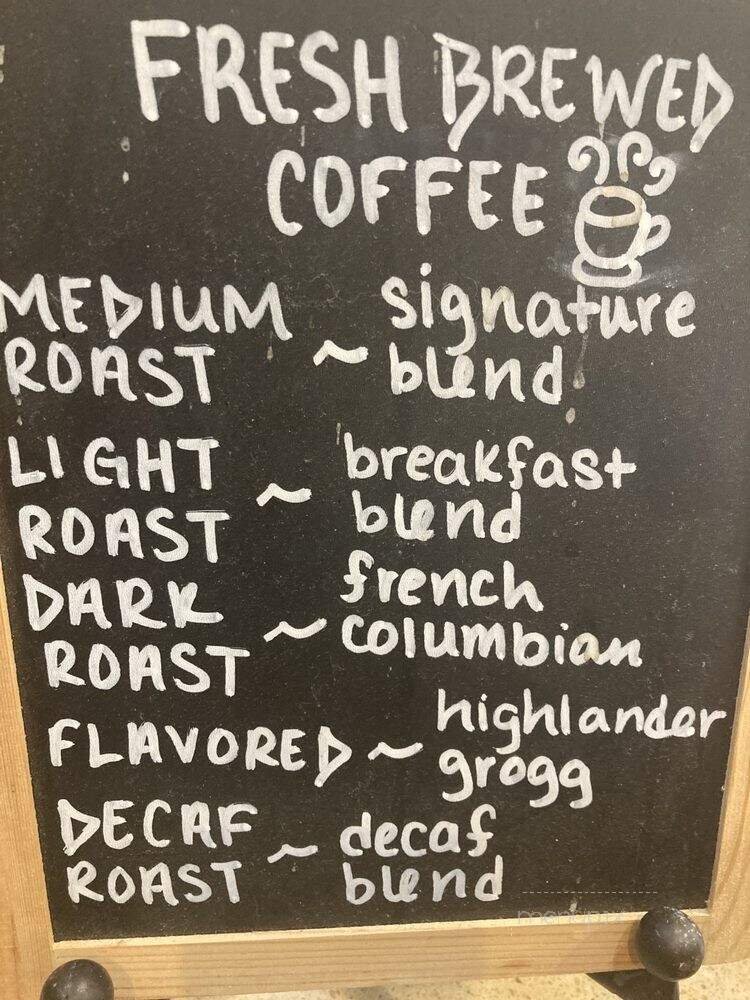 FRESH BREWED
COFFEE
MEDIUM signature
ROAST ~ blend
LIGHT breakfast
ROAST ~ blend
DARK french
ROAST ~ columbian
FLAVORED ~ highlander
grogg
DECAF ~ decaf
ROAST blend